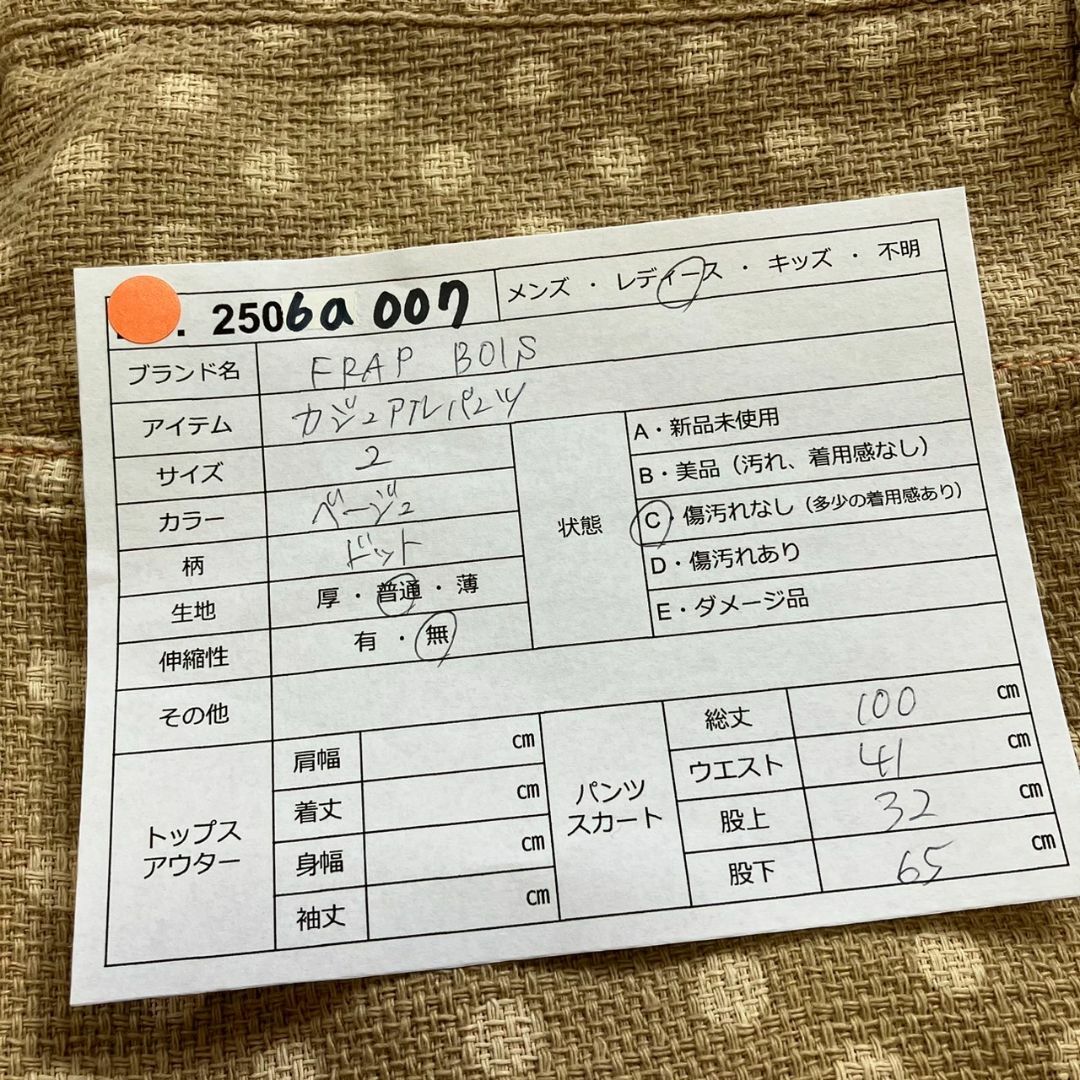 . 2506a007 メンズ ・ レディース ・ キッズ ・ 不明
ブランド名 FRAP BOIS
アイテム カジュアルパンツ
サイズ 2
カラー ベージュ
柄 ドット
生地 厚 ・ 普通 ・ 薄
伸縮性 有 ・ 無
状態
A・新品未使用
B・美品（汚れ、着用感なし）
C・傷汚れなし（多少の着用感あり）
D・傷汚れあり
E・ダメージ品
その他
トップス
アウター
肩幅 cm
着丈 cm
身幅 cm
袖丈 cm
パンツ
スカート
総丈 100 cm
ウエスト 41 cm
股上 32 cm
股下 65 cm